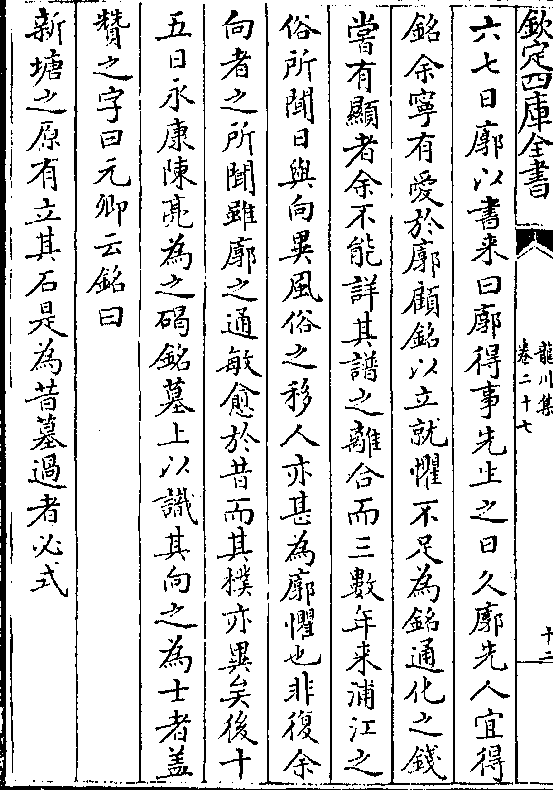 欽定四庫全書
龍川集
卷二十七
十二
六七日廓以書來曰廓得事先生之日久廓先人宜得
銘余寧有愛於廓顧銘以立就懼不足為銘通化之錢
嘗有顯者余不能詳其譜之離合而三數年来浦江之
俗所聞日與向異風俗之移人亦甚為廓懼也非復余
向者之所聞雖廓之通敏愈於昔而其樸亦異矣後十
五日永康陳亮為之碣銘墓上以識其向之為士者盖
贊之字曰元卿云銘曰
新塘之原有立其石是為昔墓過者必式